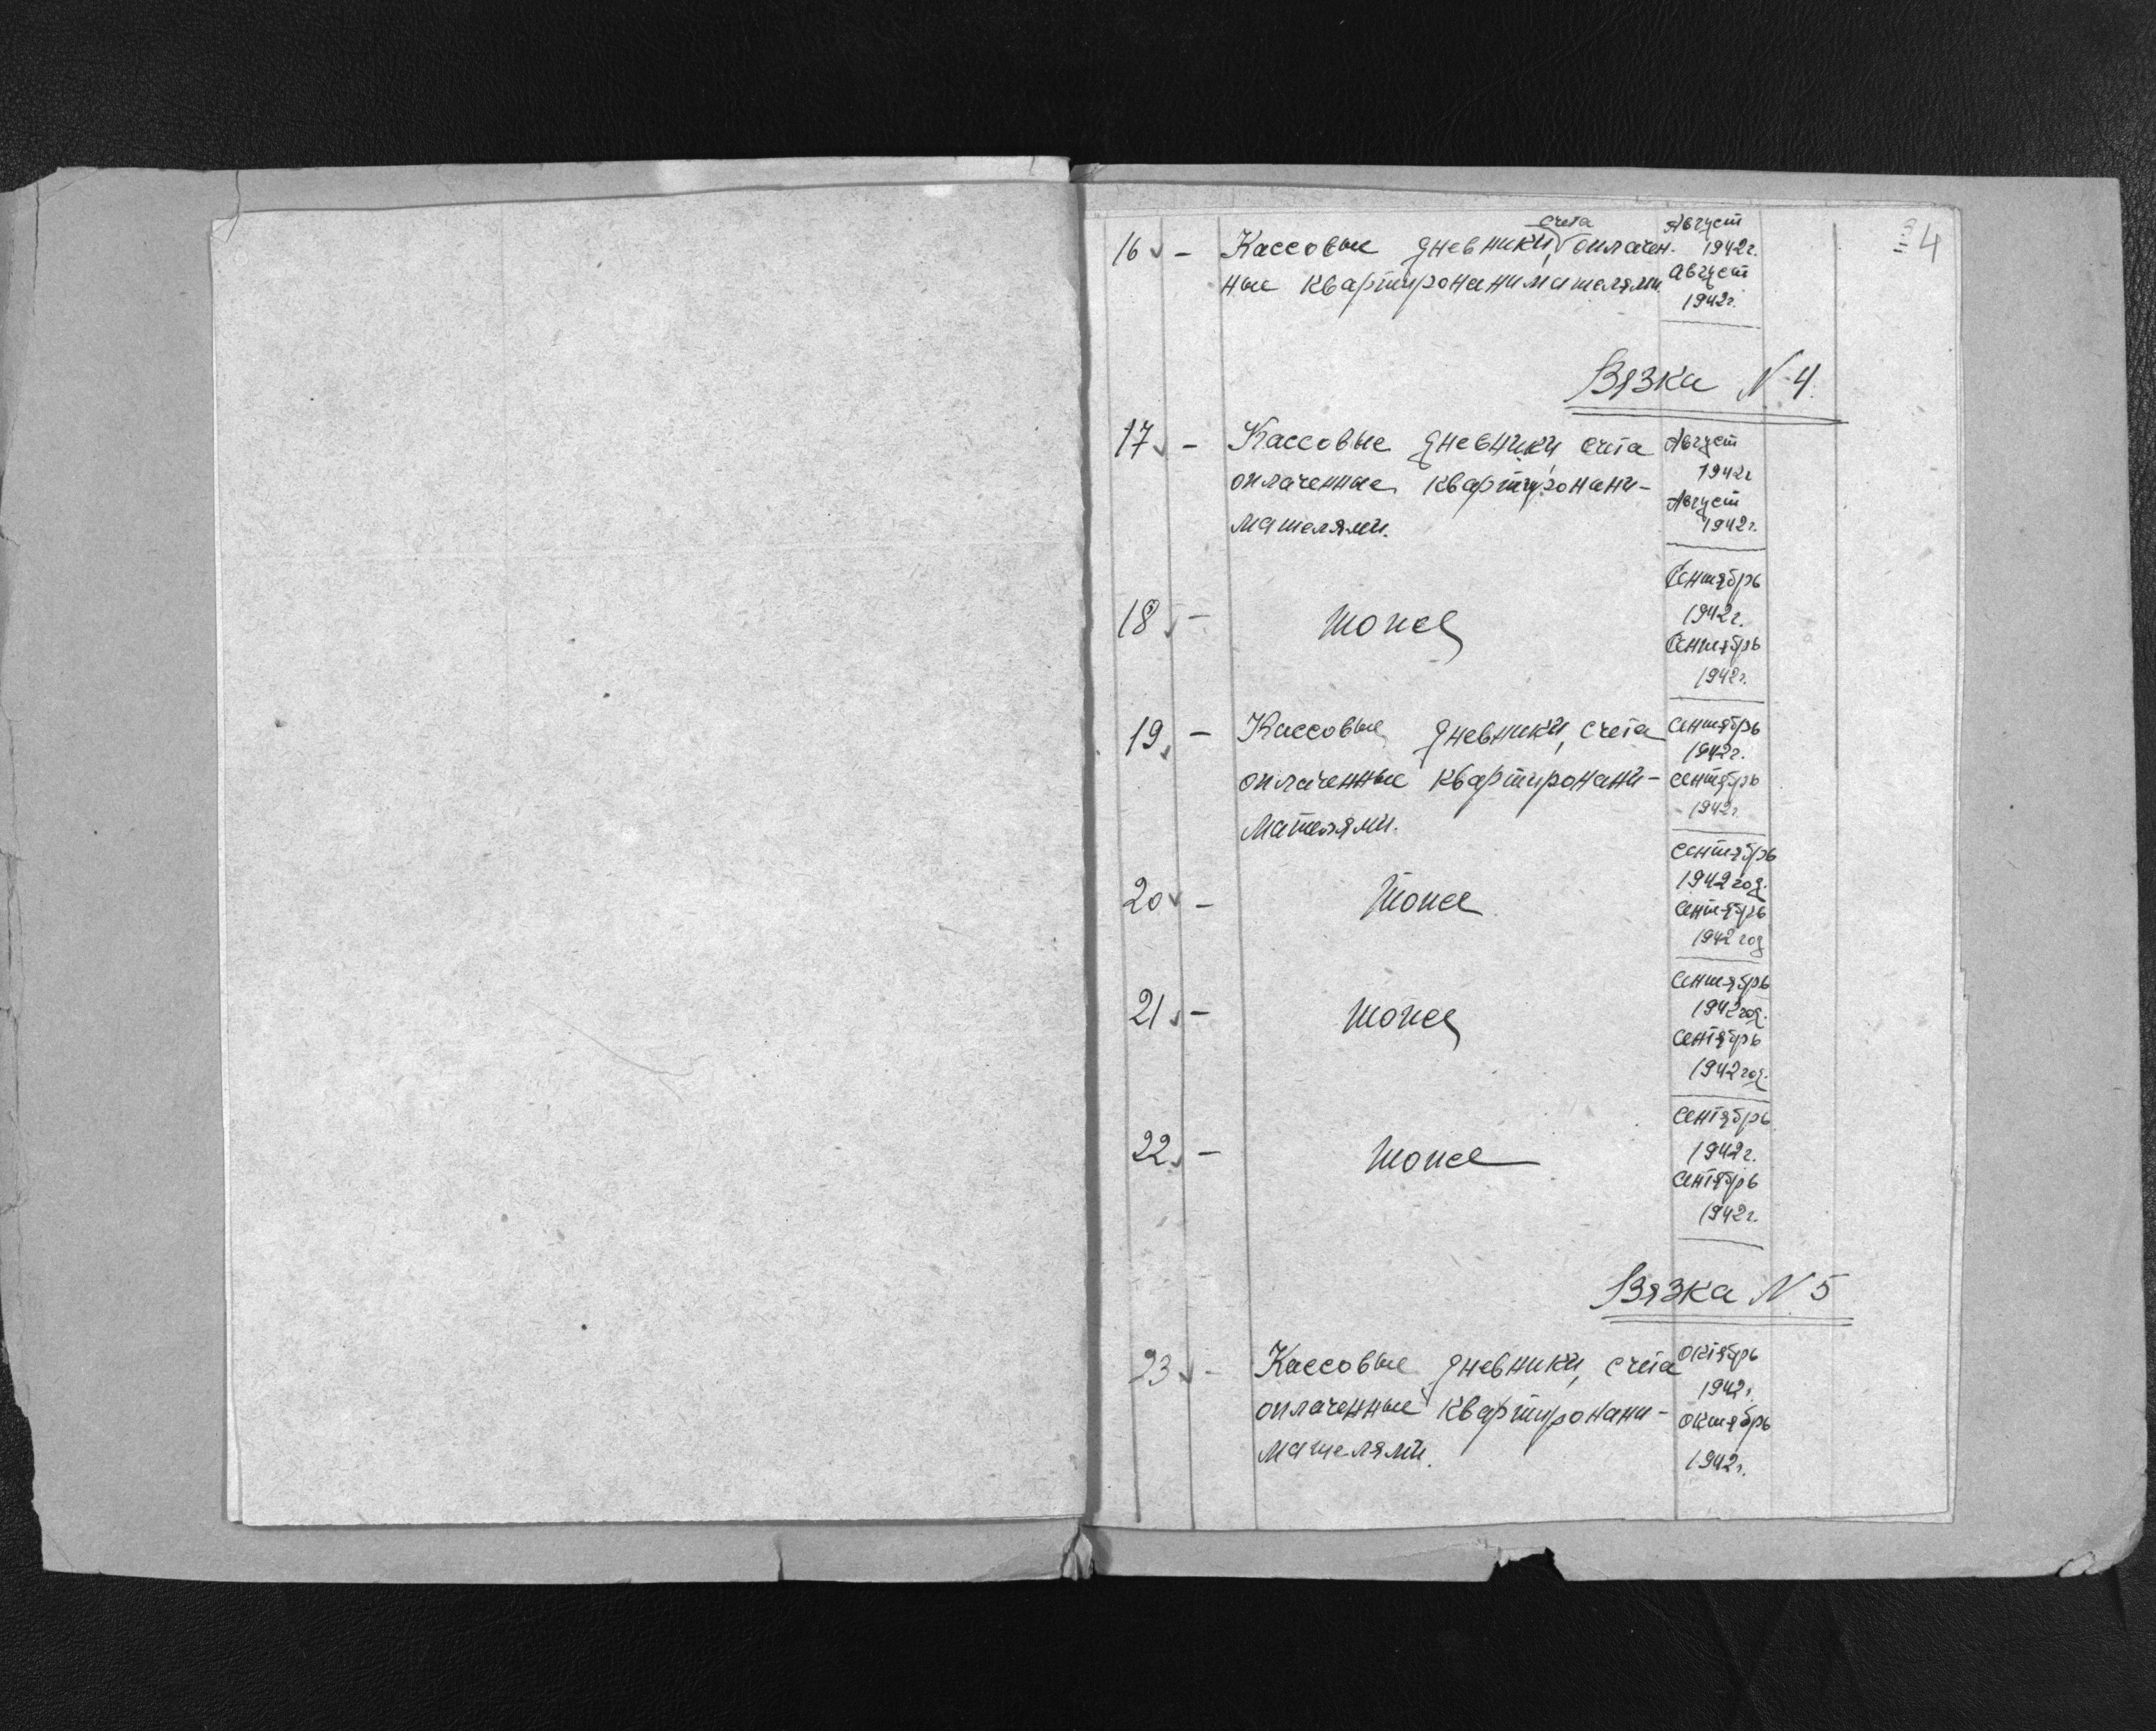 4
16 ✓ – Кассовые дневники, счета оплачен- Август 1942г.
ные квартиронанимателями. Август 1942г.
Вязка N 4.
17 ✓ – Кассовые дневники, счета Август
оплаченные квартиронани- 1942г
Август
мателями. 1942г.
Сентябрь
18 ✓ – тоже 1942г.
Сентябрь
1942г.
19 ✓ – Кассовые дневники, счета Сентябрь
1942г.
оплаченные квартиронани- Сентябрь
мателями. 1942г.
Сентябрь
1942 год.
20 ✓ – тоже Сентябрь
1942 год
Сентябрь
21 ✓ – тоже 1942 год.
Сентябрь
1942 год.
Сентябрь
22 ✓ – тоже 1942г.
Сентябрь
1942г.
Вязка N 5
23 ✓ – Кассовые дневники, счета Октябрь
1942г.
оплаченные квартиронани- Октябрь
мателями. 1942г.